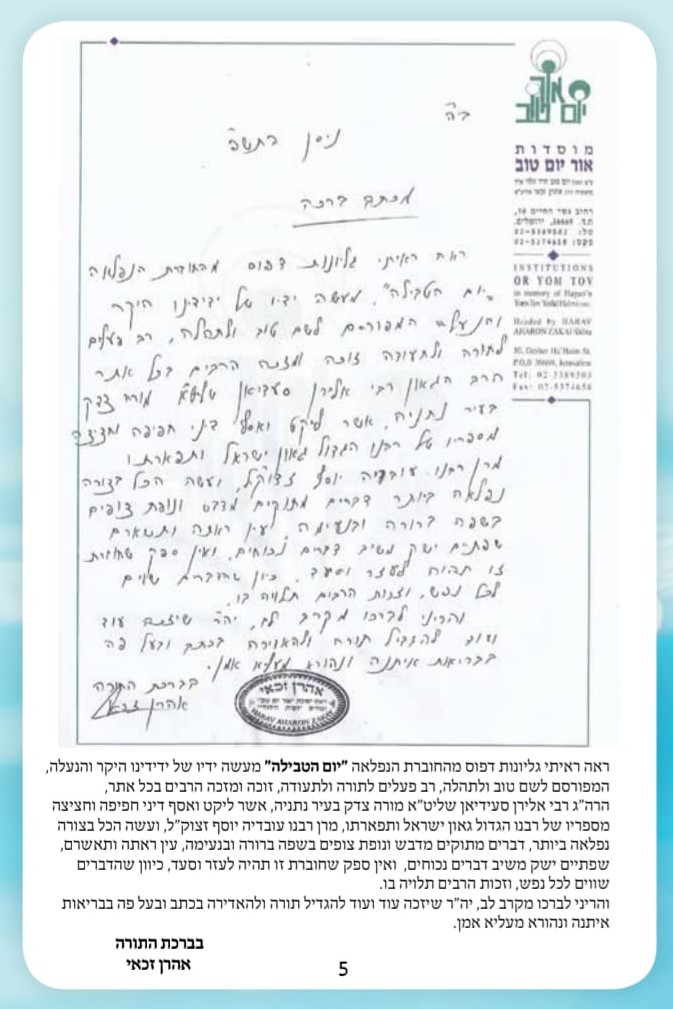 ב"ה
ניסן התש"פ
מכתב ברכה
אור
יום טוב
מוסדות
אור יום טוב
רחוב גשר החיים 30,
ת.ד. 36669, ירושלים.
טל: 02-5389503
פקס: 02-5374658
INSTITUTIONS
OR YOM TOV
in memory of Hagao'n
Headed by HARAV
AHARON ZAKAI Shlita
30, Gesher Ha'Haim St.
P.O.B 36669, Jerusalem
Tel: 02-5389503
Fax: 02-5374658
ראה ראיתי גליונות דפוס מהחוברת הנפלאה
"יום הטבילה", מעשה ידיו של ידידינו היקר
והנעלה המפורסם לשם טוב ולתהלה, רב פעלים
לתורה ולתעודה זוכה ומזכה הרבים בכל אתר
הרב הגאון רבי אלירן סעדיאן שליט"א מורה צדק
בעיר נתניה, אשר ליקט ואסף דיני חפיפה וחציצה
מספריו של רבנו הגדול גאון ישראל ותפארתו
מרן רבנו עובדיה יוסף זצוק"ל, ועשה הכל בצורה
נפלאה ביותר דברים מתוקים מדבש ונופת צופים
בשפה ברורה ובנעימה, עין ראתה ותאשרם
שפתים ישק משיב דברים נכוחים, ואין ספק שחוברת
זו תהיה לעזר וסעד, כיון שהדברים שוים
לכל נפש, וזכות הרבים תלויה בו.
והריני לברכו מקרב לב, יה"ר שיזכה עוד
ועוד להגדיל תורה ולהאדירה בכתב ובעל פה
בבריאות איתנה ונהורא מעליא אמן.
בברכת התורה
אהרן זכאי
אהרן זכאי
HARAV AHARON ZAKAI
ראה ראיתי גליונות דפוס מהחוברת הנפלאה "יום הטבילה" מעשה ידיו של ידידינו היקר והנעלה,
המפורסם לשם טוב ולתהלה, רב פעלים לתורה ולתעודה, זוכה ומזכה הרבים בכל אתר,
הרה"ג רבי אלירן סעידיאן שליט"א מורה צדק בעיר נתניה, אשר ליקט ואסף דיני חפיפה וחציצה
מספריו של רבנו הגדול גאון ישראל ותפארתו, מרן רבנו עובדיה יוסף זצוק"ל, ועשה הכל בצורה
נפלאה ביותר, דברים מתוקים מדבש ונופת צופים בשפה ברורה ובנעימה, עין ראתה ותאשרם,
שפתיים ישק משיב דברים נכוחים, ואין ספק שחוברת זו תהיה לעזר וסעד, כיוון שהדברים
שווים לכל נפש, וזכות הרבים תלויה בו.
והריני לברכו מקרב לב, יה"ר שיזכה עוד ועוד להגדיל תורה ולהאדירה בכתב ובעל פה בבריאות
איתנה ונהורא מעליא אמן.
בברכת התורה
אהרן זכאי
5